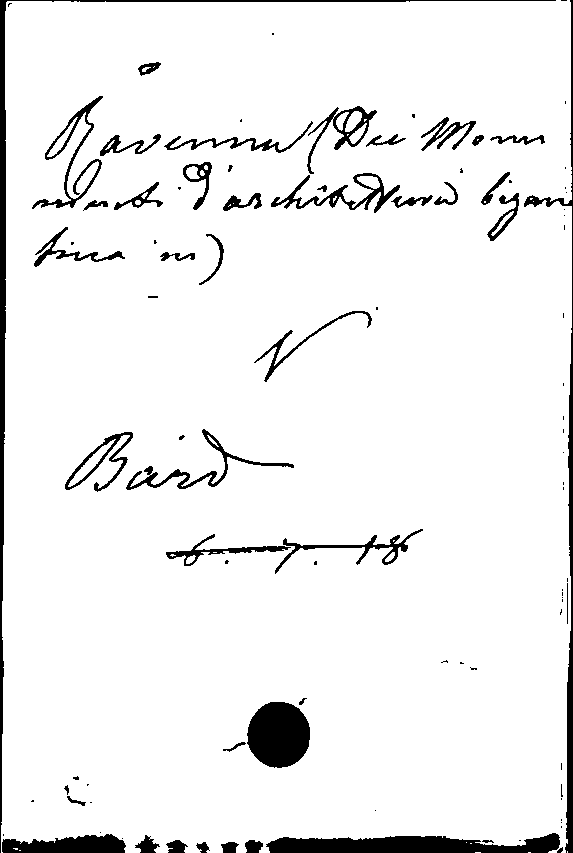 Ravenna (Dei Monu
menti d'architettura bizan
tina in)
V
Bard
6. 7. 18